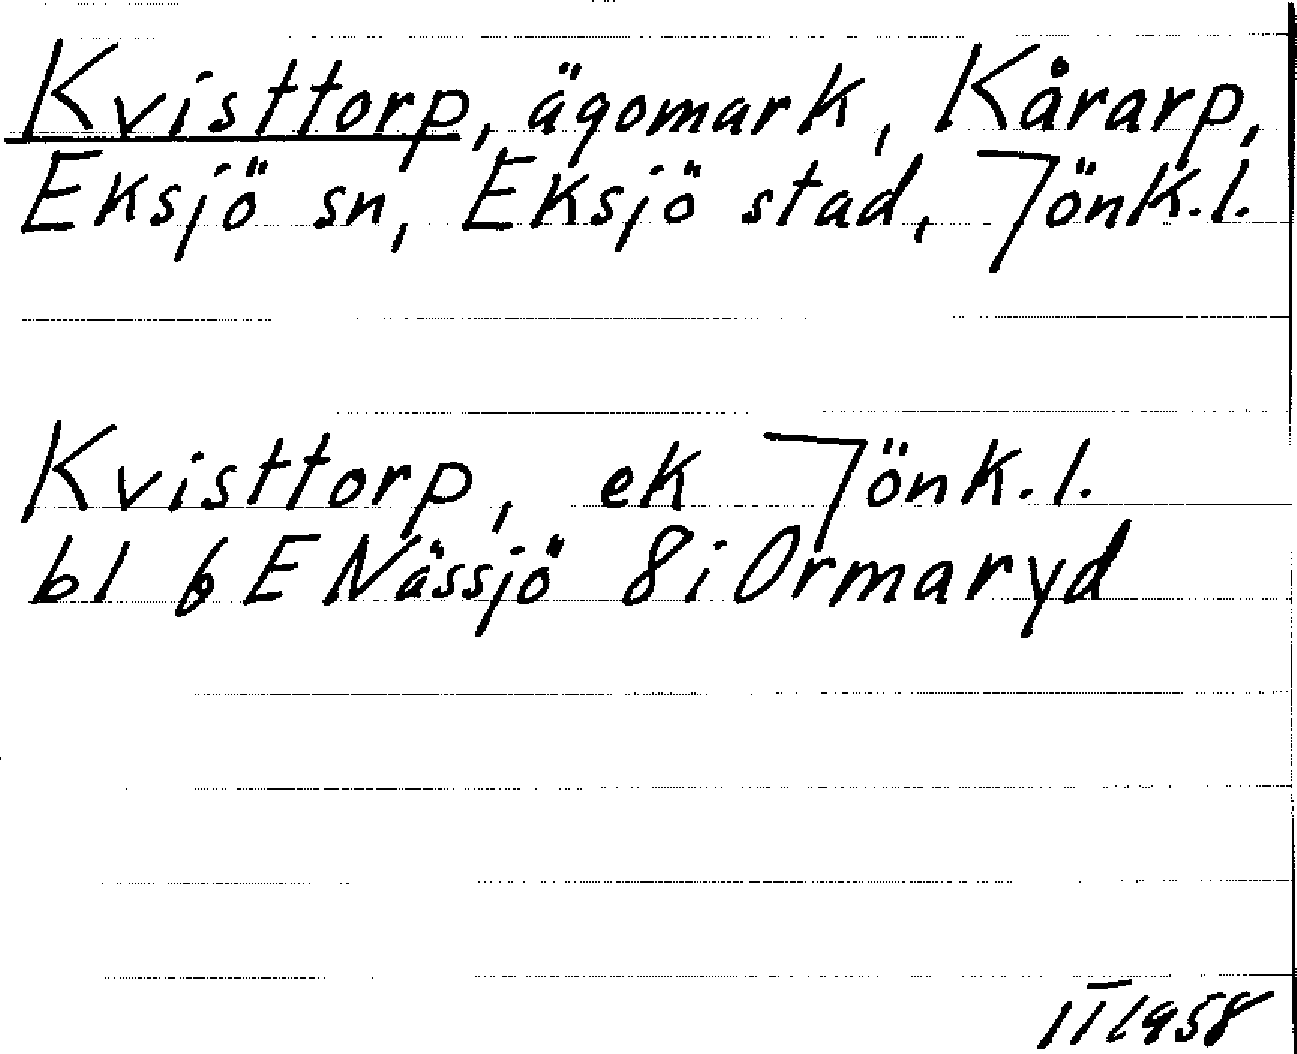 Kvisttorp, ägomark, Kårarp,
Eksjö sn, Eksjö stad, Jönk.l.
Kvisttorp, ek Jönk.l.
bl 6 E Nässjö 8i Ormaryd
II 1958